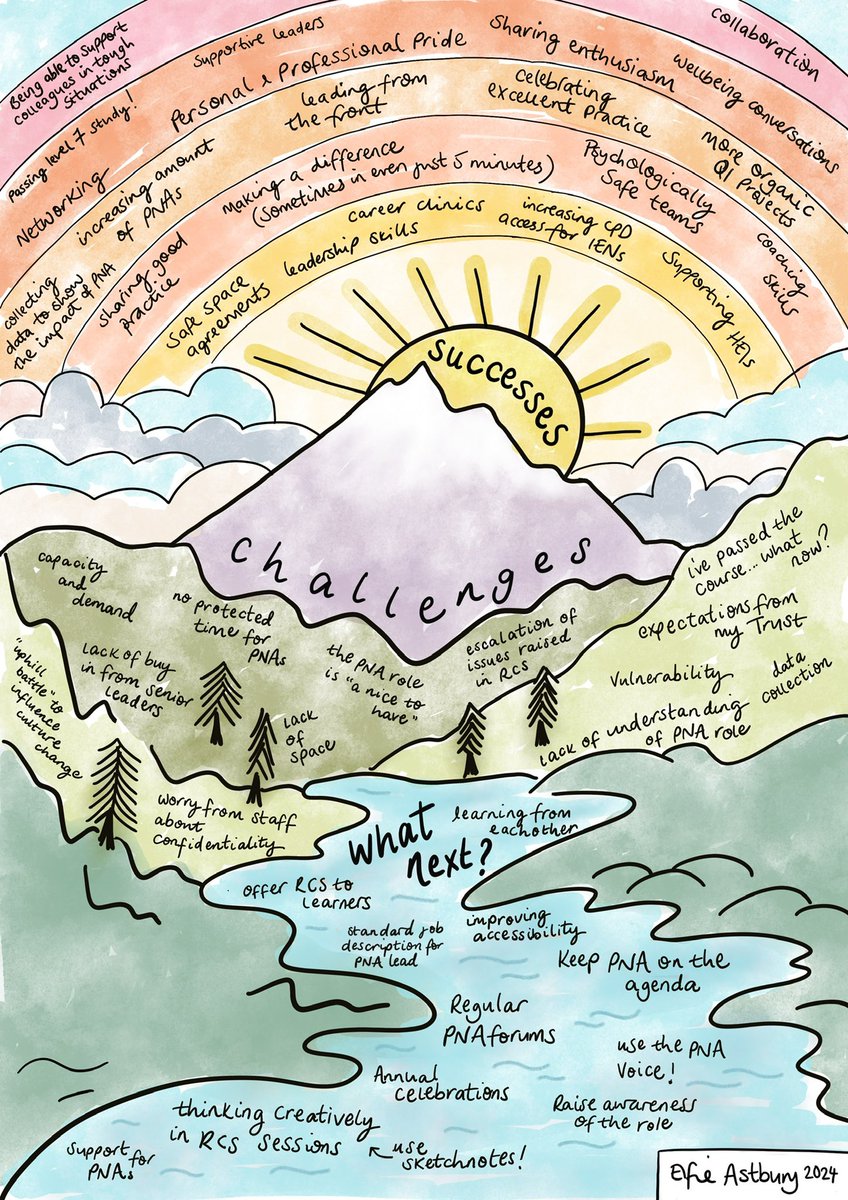 Being able to support
colleagues in tough
situations
Supportive leaders
Sharing enthusiasm
collaboration
Passing level 7 study!
Personal & Professional Pride
wellbeing conversations
Networking
increasing amount
of PNAs
leading from
the front
celebrating
excellent practice
more organic
QI Projects
collecting
data to show
the impact of PNA
sharing good
practice
Making a difference
(sometimes in even just 5 minutes)
Psychologically
Safe teams
coaching
skills
Safe space
agreements
leadership skills
career clinics
increasing CPD
access for IENs
Supporting HEIs
successes
challenges
capacity
and
demand
no protected
time for
PNAs
"uphill
battle" to
influence
culture
change
Lack of buy
in from senior
leaders
the PNA role
is "a nice to
have"
escalation of
issues raised
in RCS
lack
of
space
worry from staff
about
confidentiality
i've passed the
course... what
now?
expectations from
my Trust
Vulnerability
data
collection
Lack of understanding
of PNA role
What
next?
learning from
eachother
offer RCS to
learners
standard job
description for
PNA lead
improving
accessibility
Keep PNA on the
agenda
Regular
PNA forums
use the PNA
Voice!
Annual
celebrations
Raise awareness
of the role
thinking creatively
in RCS sessions
use
sketchnotes!
support for
PNAs
Effie Astbury 2024